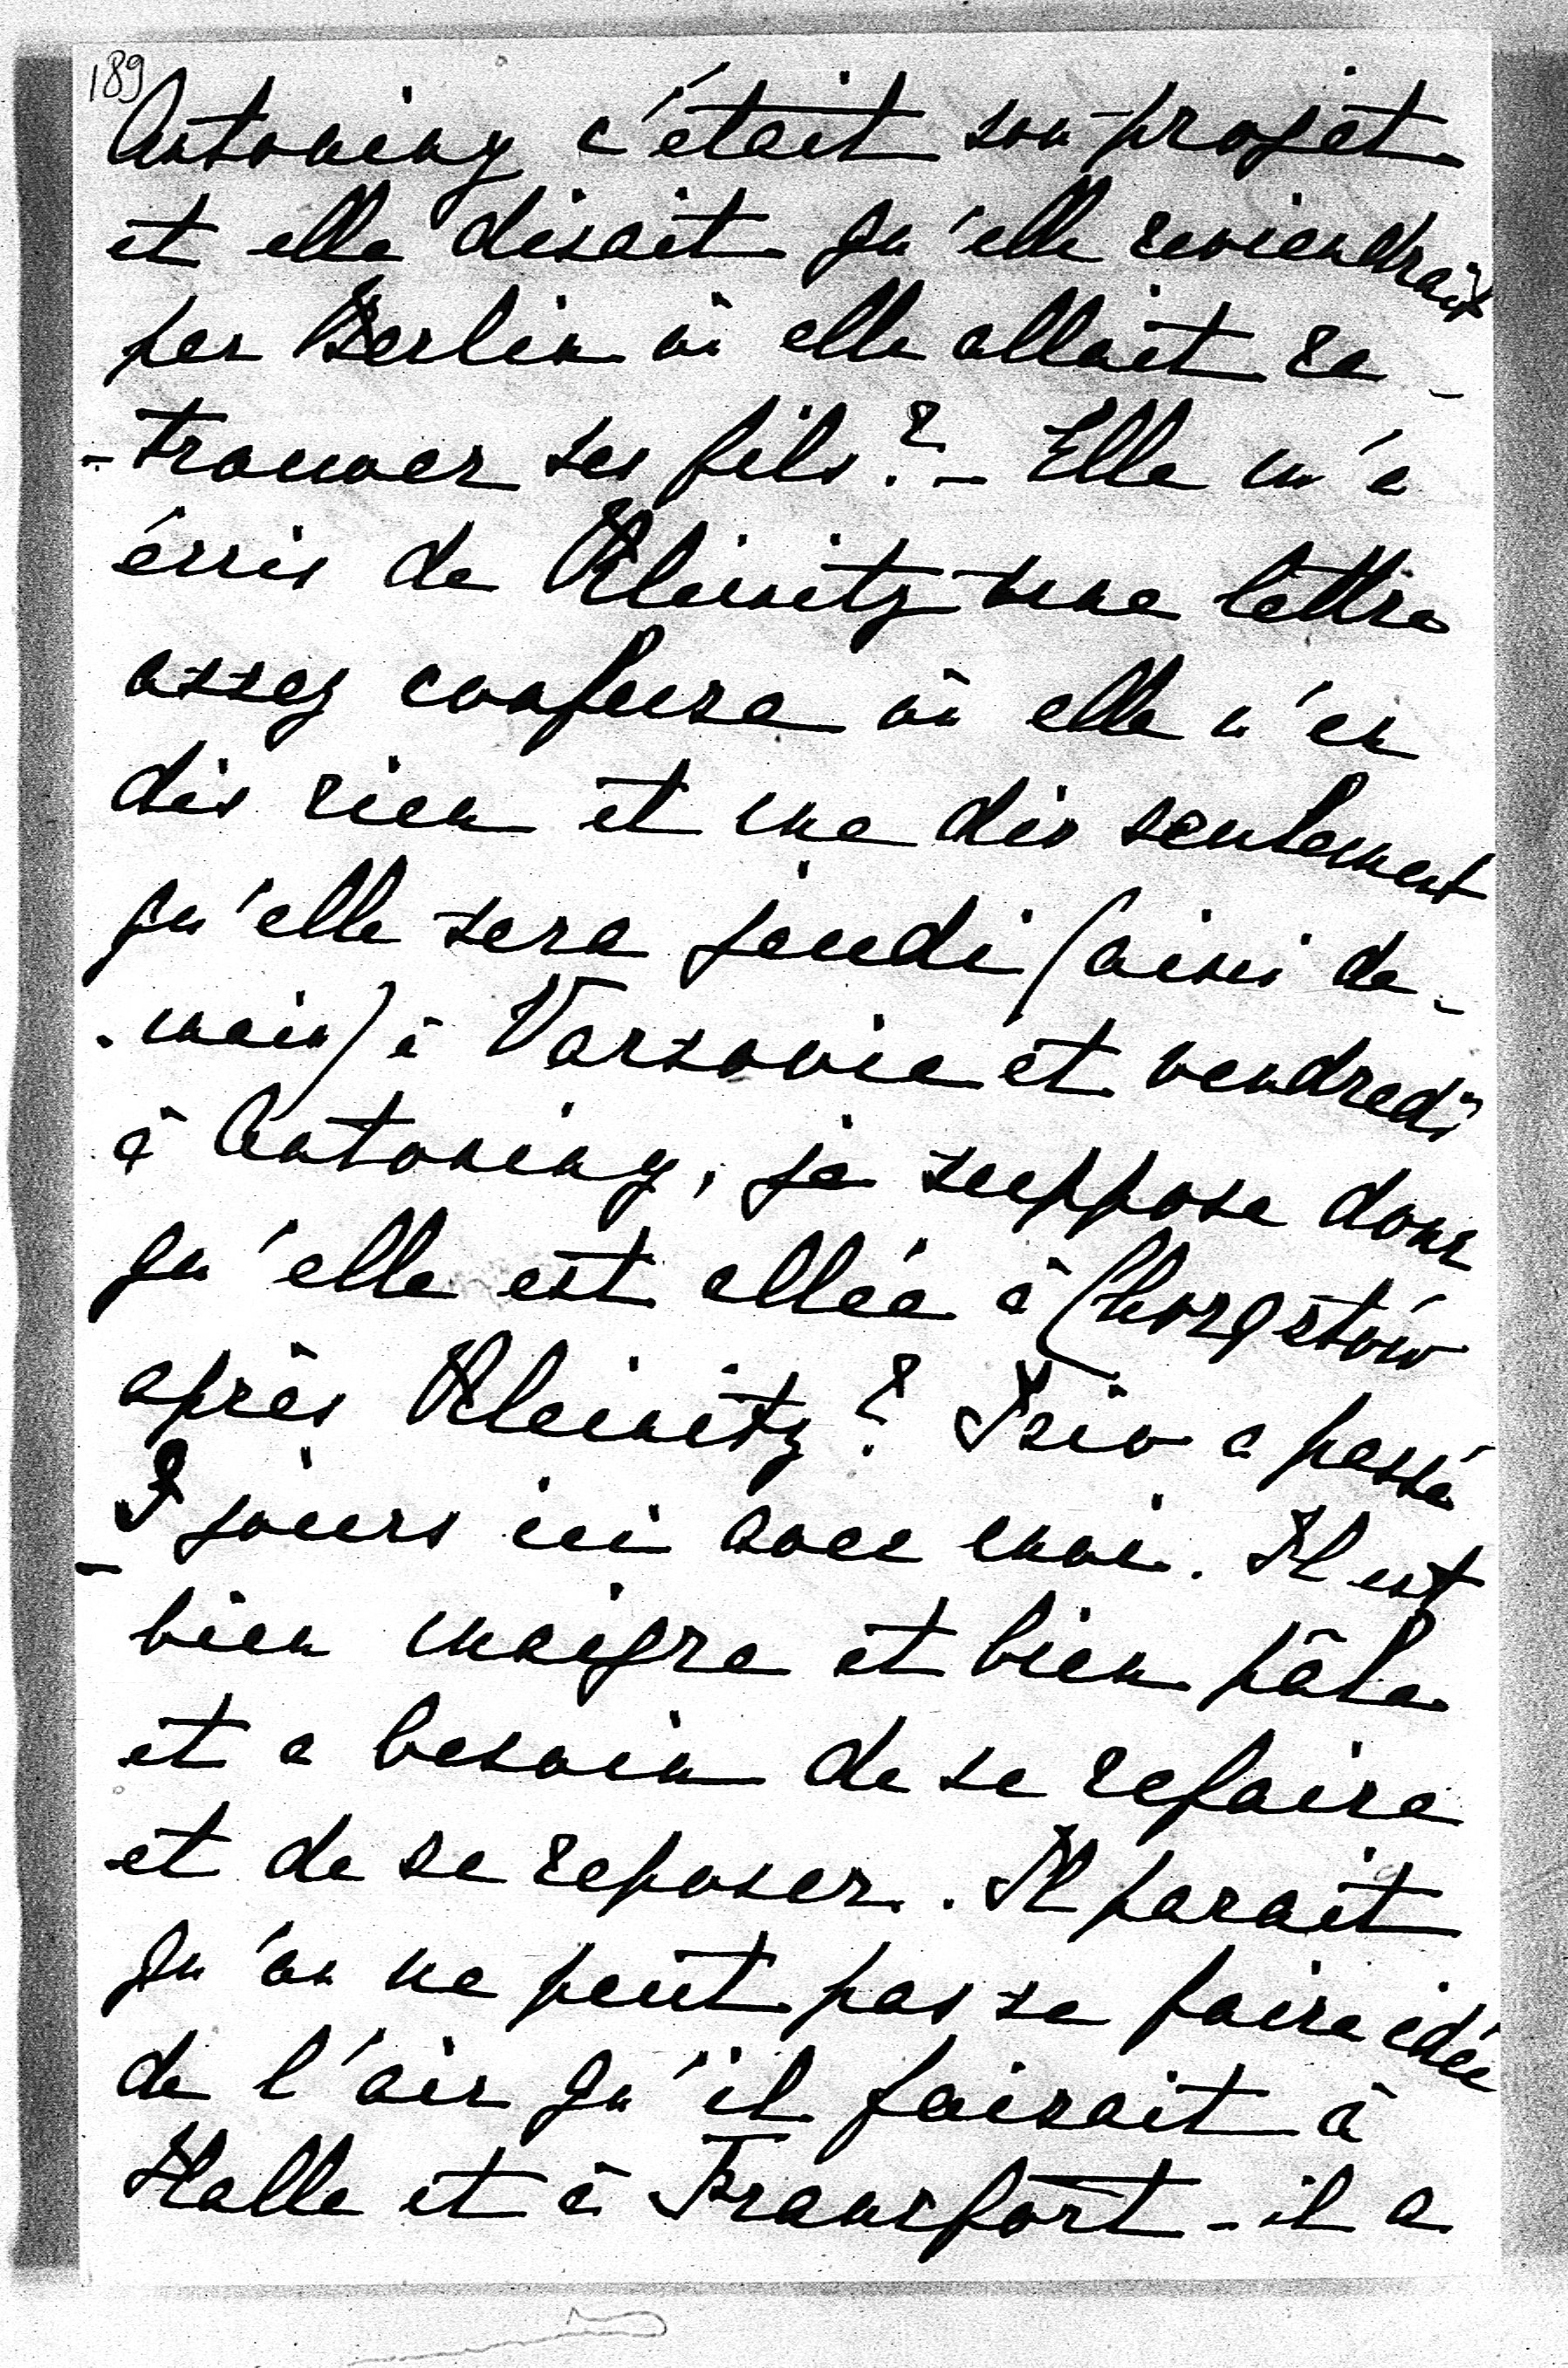 189
Antoniny c'était son projet
et elle disait qu'elle reviendrait
par Berlin où elle allait re-
-trouver ses fils? - Elle m'a
écris de Kleinitz une lettre
assez confuse où elle n'en
dis rien et me dis seulement
qu'elle sera jeudi (ainsi de-
-main) à Varsovie et vendredi
à Antoniny, je suppose donc
qu'elle est allée à Chorzstów
après Kleinitz? a passé
jours ici avec moi. Il est
bien maigre et bien pâle
et a besoin de se refaire
et de se reposer. Il parait
qu'on ne peut pas se faire idée
de l'air qu'il faisait à
Halle et à Francfort - il a